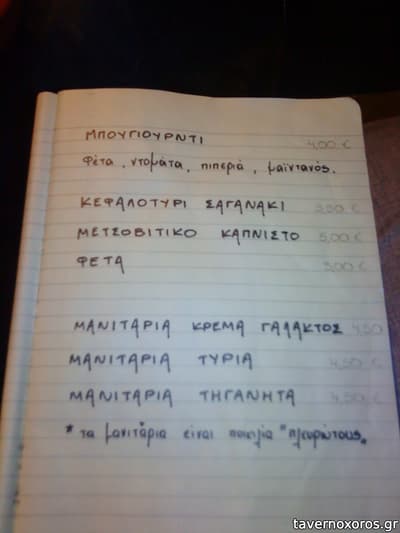 ΜΠΟΥΓΙΟΥΡΝΤΙ 4,00 €
φέτα, ντομάτα, πιπεριά, μαϊντανός.
ΚΕΦΑΛΟΤΥΡΙ ΣΑΓΑΝΑΚΙ €
ΜΕΤΣΟΒΙΤΙΚΟ ΚΑΠΝΙΣΤΟ 5,00 €
ΦΕΤΑ 3,00 €
ΜΑΝΙΤΑΡΙΑ ΚΡΕΜΑ ΓΑΛΑΚΤΟΣ 4,50
ΜΑΝΙΤΑΡΙΑ ΤΥΡΙΑ 4,50 €
ΜΑΝΙΤΑΡΙΑ ΤΗΓΑΝΗΤΑ 4,50 €
* τα μανιτάρια είναι ποικιλία "πλευρώτους.
tavernoxoros.gr